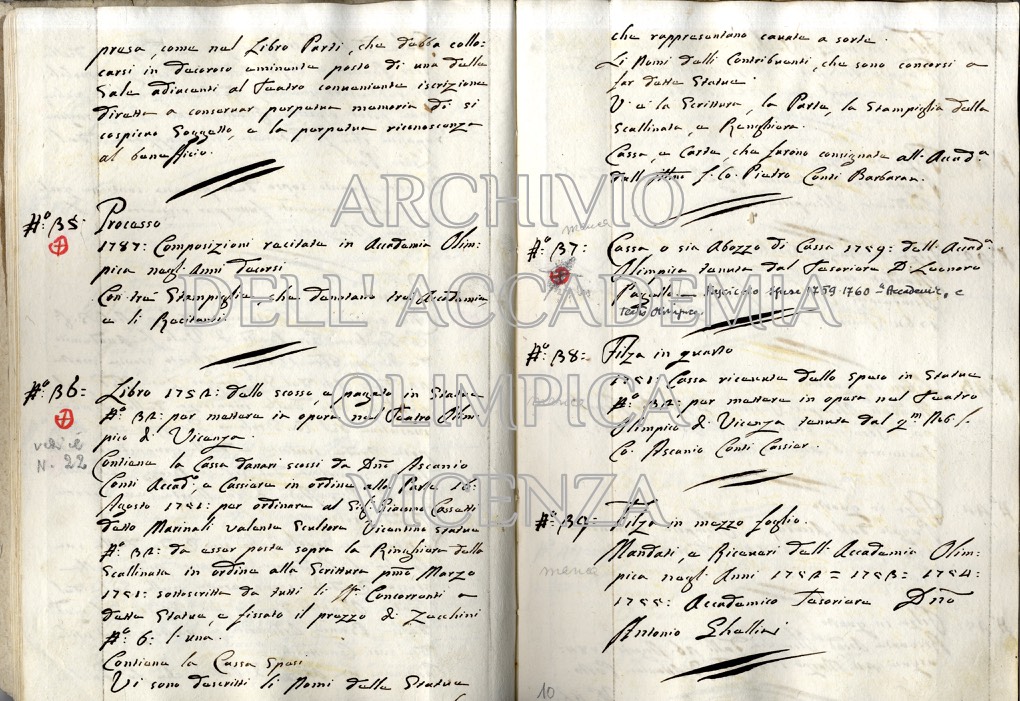 presa, come nel Libro Parti, che debba collo:
carsi in decoroso eminente posto di una delle
Sale adiacenti al Teatro conveniente iscrizione
diretta a conservar perpetua memoria di sì
cospicuo Soggetto, e la perpetua riconoscenza
al beneffizio.
N.º 35: Processo
1787: Composizioni recitate in Accademia Olim:
pica negl'Anni decorsi
Con tre Stampiglie, che denotano tre Accademie,
e li Recitanti.
N.º 36: Libro 1752: dello scosso, e pagato in Statue
vedi il
N. 22
N.º 32: per mettere in opera nel Teatro Olim:
pico di Vicenza.
Contiene la Cassa denari scossi da Dño Ascanio
Conti Accad.º, e Cassiere in ordine alla Parte 16:
Agosto 1751: per ordinare al Sig.r Giacomo Cassetti
detto Marinali valente Scultore Vicentino Statue
N.º 32: da esser poste sopra la Ringhiera della
Scallinata in ordine alla Scrittura pmo Marzo
1751: sottoscritta da tutti li Concorrenti a
dette Statue, e fissato il prezzo di Zecchini
N.º 6: l'una.
Contiene la Cassa Spesi
Vi sono descritti li Nomi delle Statue
che rappresentano cavate a sorte.
Li Nomi delli Contribuenti, che sono concorsi a
far dette Statue.
V'è la Scrittura, la Parte, la Stampiglia della
Scallinata, e Renghiera.
Cassa, e Carte, che furono consegnate all'Accad.a
dall' Illmo S.r Co. Pietro Conti Barbaran.
manca
N.º 37: Cassa o sia Abozzo di Cassa 1759: dell'Accad.a
Olimpica tenuta dal Tesoriere D. Leonoro
fascicolo spese 1759 1760 "Accademia e
Teatro Olimpico"
N.º 38: Filza in quarto
1751: Cassa ricevute delle Spese in Statue
manca
N.º 32: per mettere in opera nel Teatro
Olimpico di Vicenza tenuta dal q.m Nob. S.
Co. Ascanio Conti Cassier.
N.º 39: Filza in mezzo foglio.
manca
Mandati, e Riceveri dell'Accademia Olim:
pica negl'Anni 1752 = 1753 = 1754:
1755: Accademico Tesoriere Dño
Antonio Ghellini
10
ARCHIVIO
DELL'ACCADEMIA
OLIMPICA
VICENZA